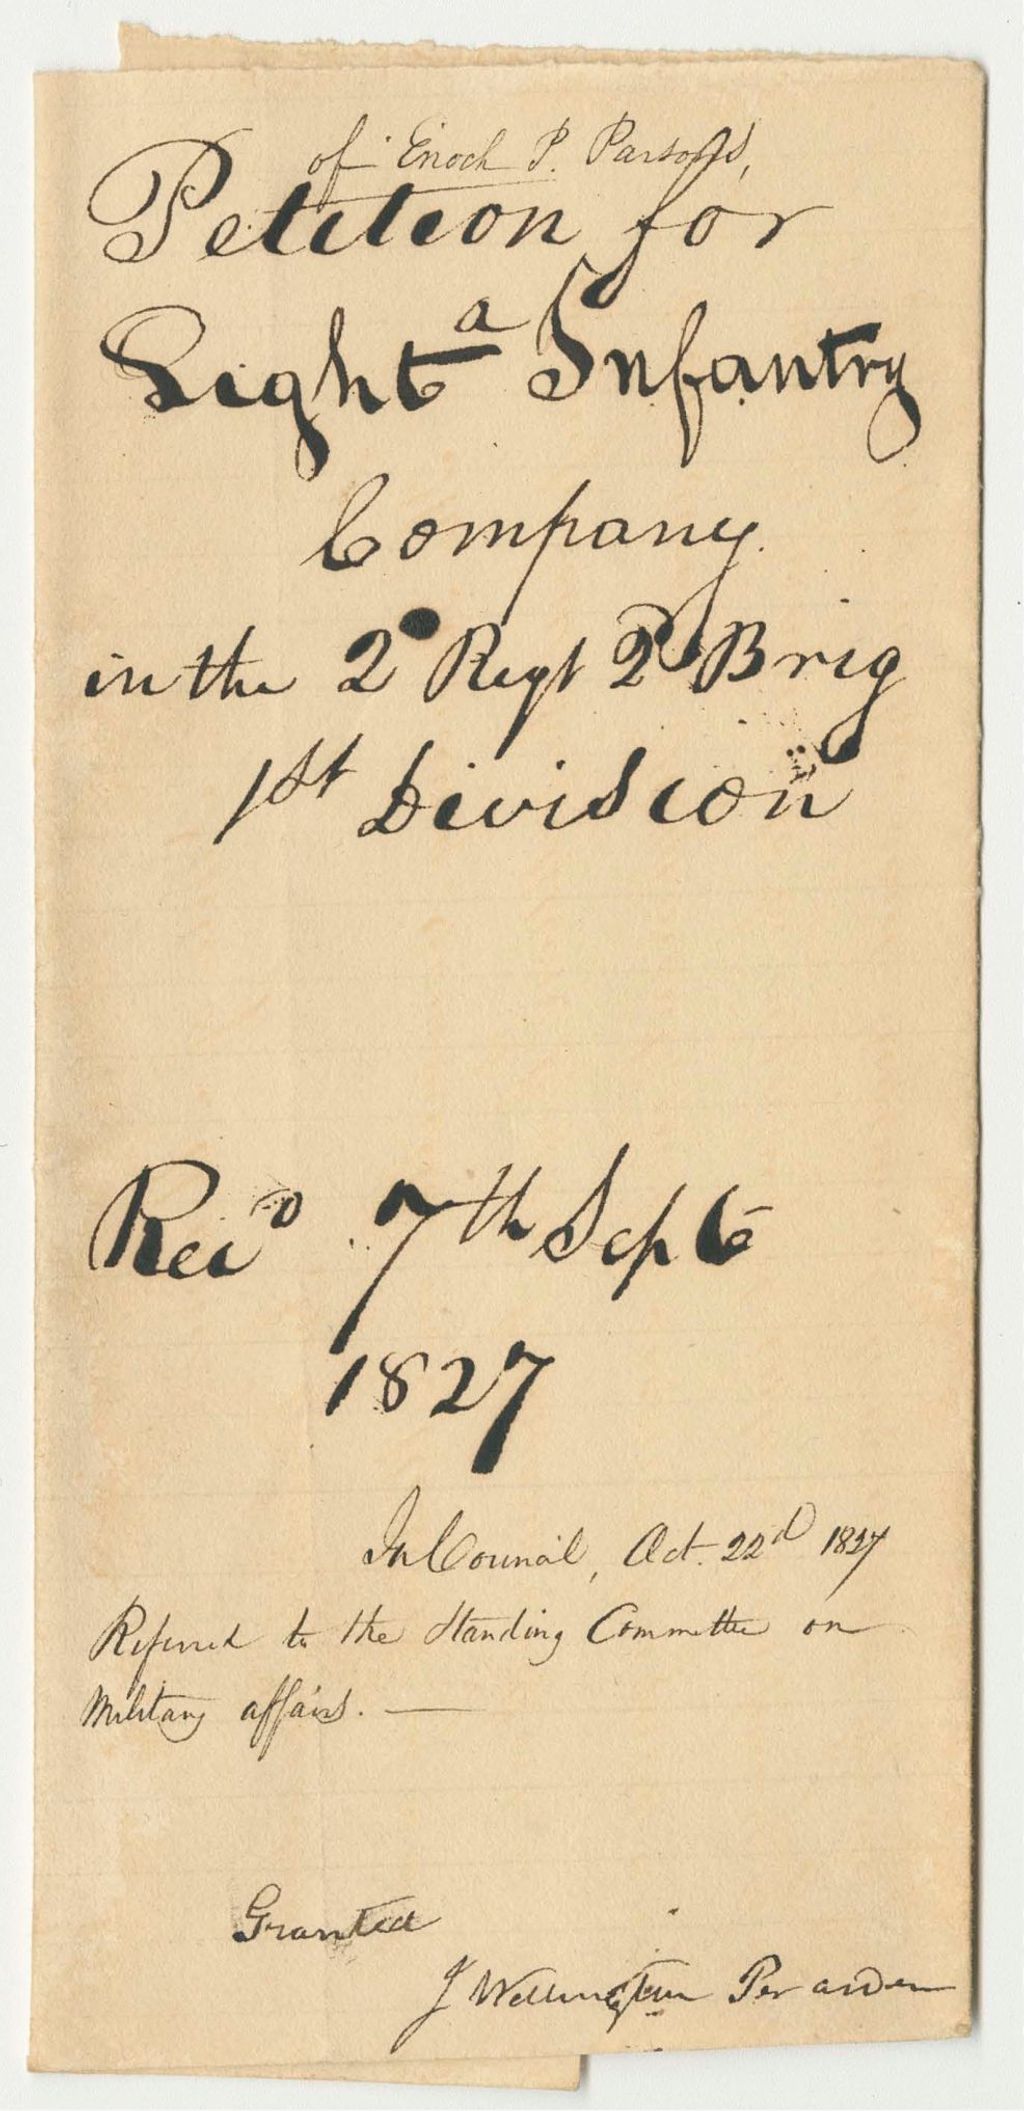 of Enoch P. Parsons,
Petition for
Light a Infantry
Company
in the 2d Regt 2d Brig
1st Division
Recd 7th Sept
1827
In Council, Oct. 22d 1827
Referred to the Standing Committee on
Military affairs. —
Granted
J Wellington Per order